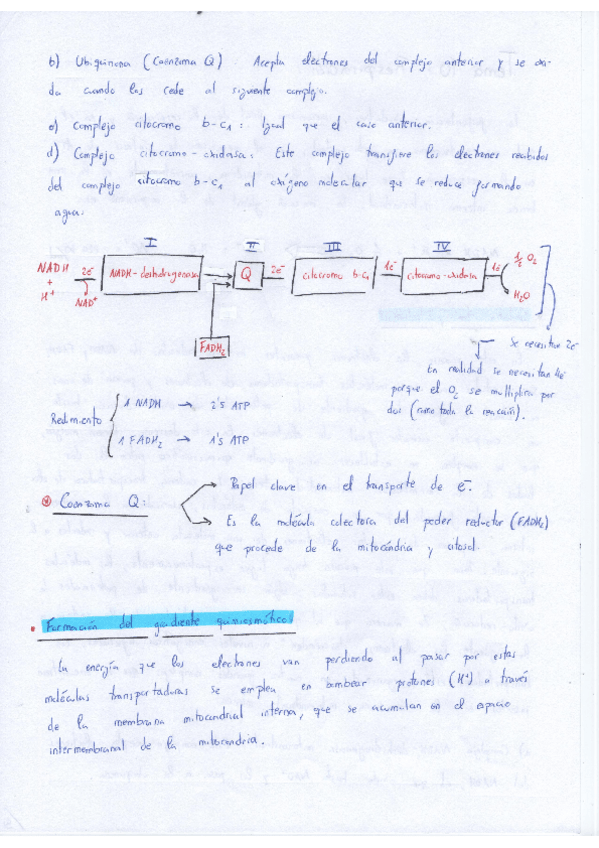 b) Ubiquinona (Coenzima Q). Acepta electrones del complejo anterior y se oxi-
da cuando los cede al siguiente complejo.
c) Complejo citocromo b-c1: Igual que el caso anterior.
d) Complejo citocromo-oxidasa: Este complejo transfiere los electrones recibidos
del complejo citocromo b-c1 al oxígeno molecular que se reduce formando
agua:
I II III IV
NADH + H+ 2e- NAD+ NADH-deshidrogenasa Q 2e- citocromo b-c1 1e- citocromo-oxidasa 1e- 1/2 O2 H2O
FADH2
Se necesitan 2e-
En realidad se necesitan 4e-
porque el O2 se multiplica por
dos (como toda la reacción).
Redimiento
1 NADH → 2's ATP
1 FADH2 → 1's ATP
Coenzima Q:
Papel clave en el transporte de e-.
Es la molécula colectora del poder reductor (FADH2)
que procede de la mitocondria y citosol.
• Formación del gradiente quimiosmótico:
La energía que los electrones van perdiendo al pasar por estas
moléculas transportadoras se emplea en bombear protones (H+) a través
de la membrana mitocondrial interna, que se acumulan en el espacio
intermembranal de la mitocondria.